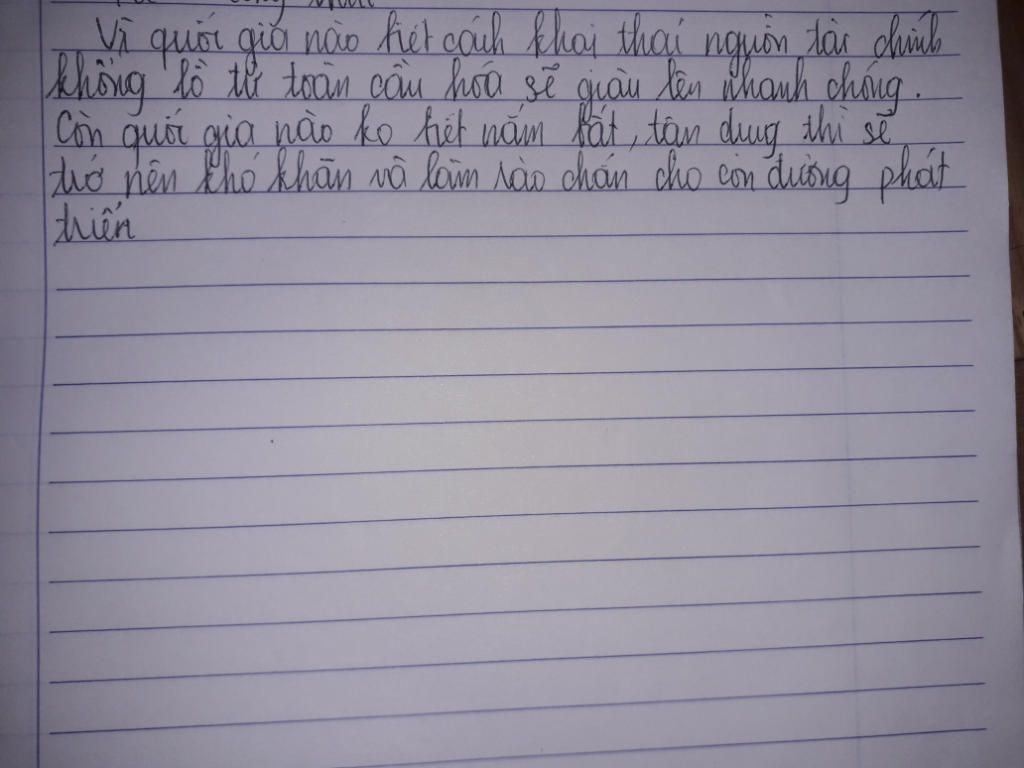 Vì quối gia nào biết cách khai thái nguồn tài chính
khổng lồ từ toàn cầu hóa sẽ giàu lên nhanh chóng.
Còn quối gia nào ko biết nắm bắt, tận dung thì sẽ
trở nên khó khăn và làm rào chắn cho con đường phát
triển